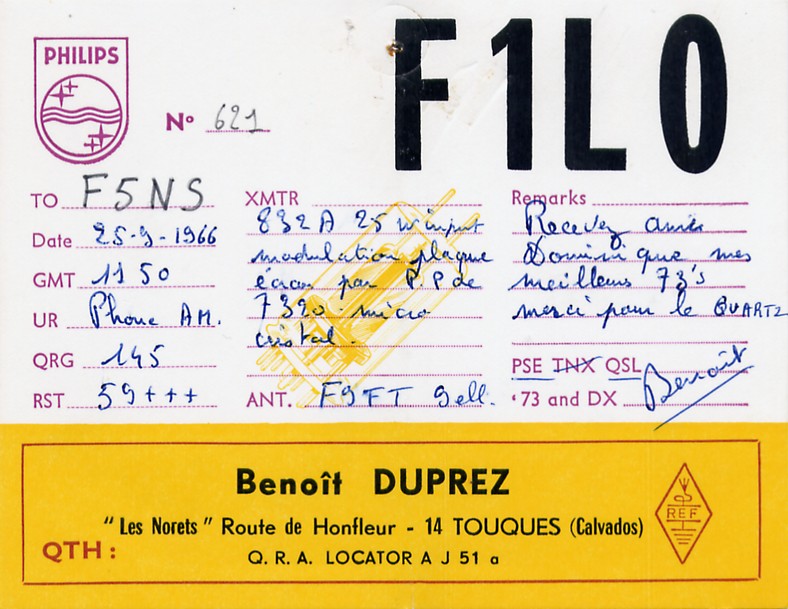 F1LO
PHILIPS
N° 621
TO F5NS
Date 25-9-1966
GMT 1150
UR Phone AM.
QRG 145
RST 59+++
XMTR
832A 25 W input
modulation plaque
écran par P.P de
7320 micro
cristal.
ANT. F9FT 9 ell.
Remarks
Recevez amis
Dominique mes
meilleurs 73's
merci pour le QUARTZ
PSE TNX QSL
'73 and DX Benoît
Benoît DUPREZ
"Les Norets" Route de Honfleur - 14 TOUQUES (Calvados)
QTH :
Q.R.A. LOCATOR A J 51 a
REF